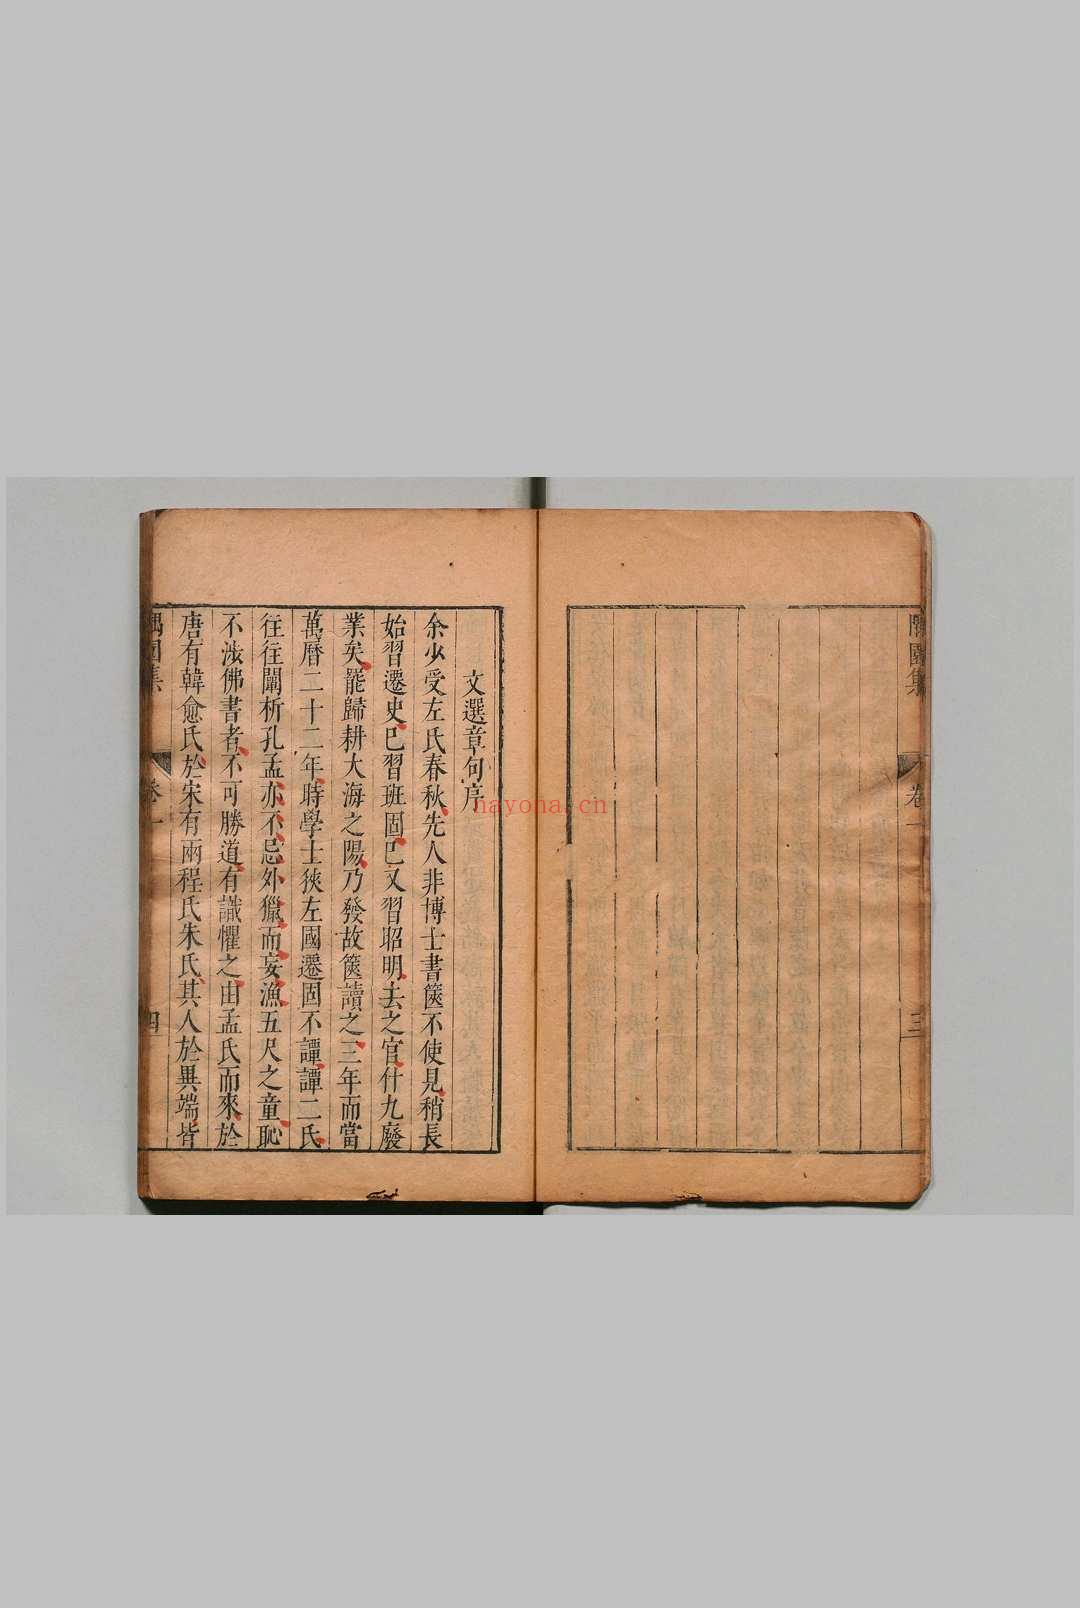 隅園集
卷一
三
文選章句序
余少受左氏春秋先人非博士書篋不使見稍長
始習遷史已習班固已又習昭明去之官什九廢
業矣罷歸耕大海之陽乃發故篋讀之三年而當
萬曆二十二年時學士狹左國遷固不譚譚二氏
往往闡析孔孟亦不忌外獵而妄漁五尺之童恥
不涉佛書者不可勝道有識懼之由孟氏而來於
唐有韓愈氏於宋有兩程氏朱氏其人於異端皆
隅園集
卷一
四
nayona.cn